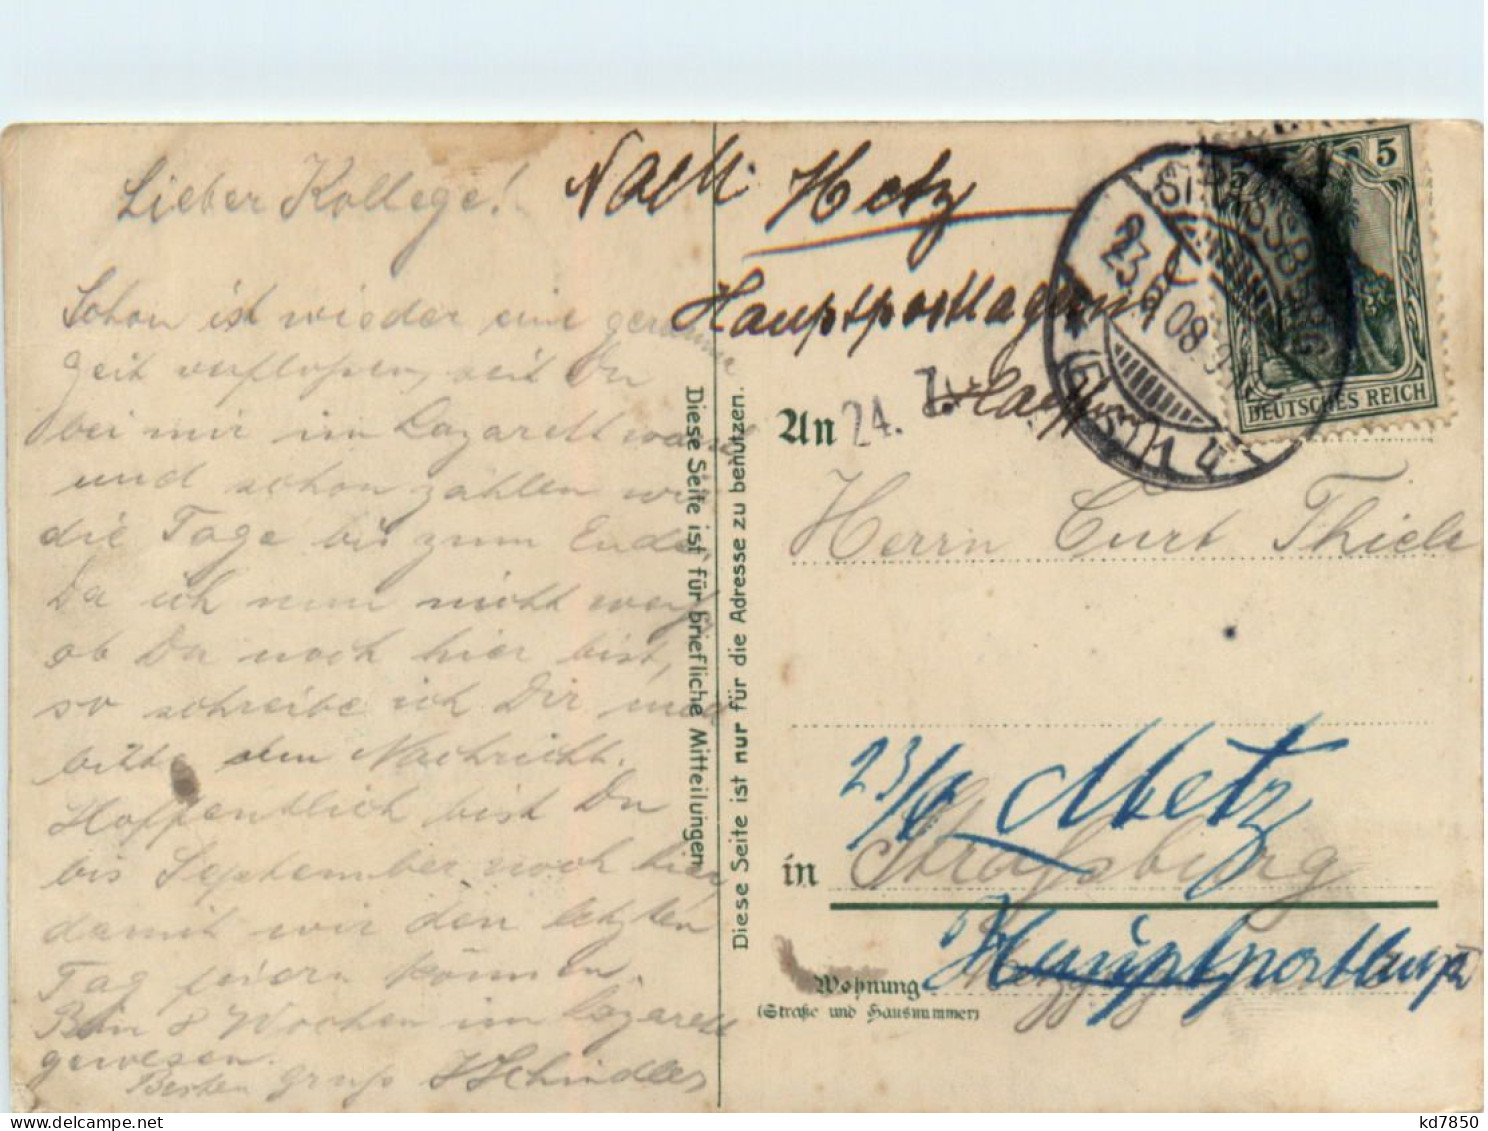 Lieber Kollege!
Schon ist wieder eine geraume
Zeit verflossen, seit Du
bei mir im Lazarett warst
und schon zählen wir
die Tage bis zum Ende.
Da ich nun nicht weiß
ob Du noch hier bist,
so schreibe ich Dir und
bitte um Nachricht.
Hoffentlich bist Du
bis September noch hier,
damit wir den letzten
Tag feiern können.
Bin 8 Wochen im Lazarett
gewesen.
Besten Gruß Schindler
Diese Seite ist für briefliche Mitteilungen
Diese Seite ist nur für die Adresse zu benutzen.
Nach Metz
Hauptpostlagernd
STRASSBURG
23. 08. 9-
(Els.) 4
5
DEUTSCHES REICH
An 24. 7.
Herrn Curt Thiele
23/ Metz
in Straßburg
Hauptpost
Wohnung
(Straße und Hausnummer)
kd7850